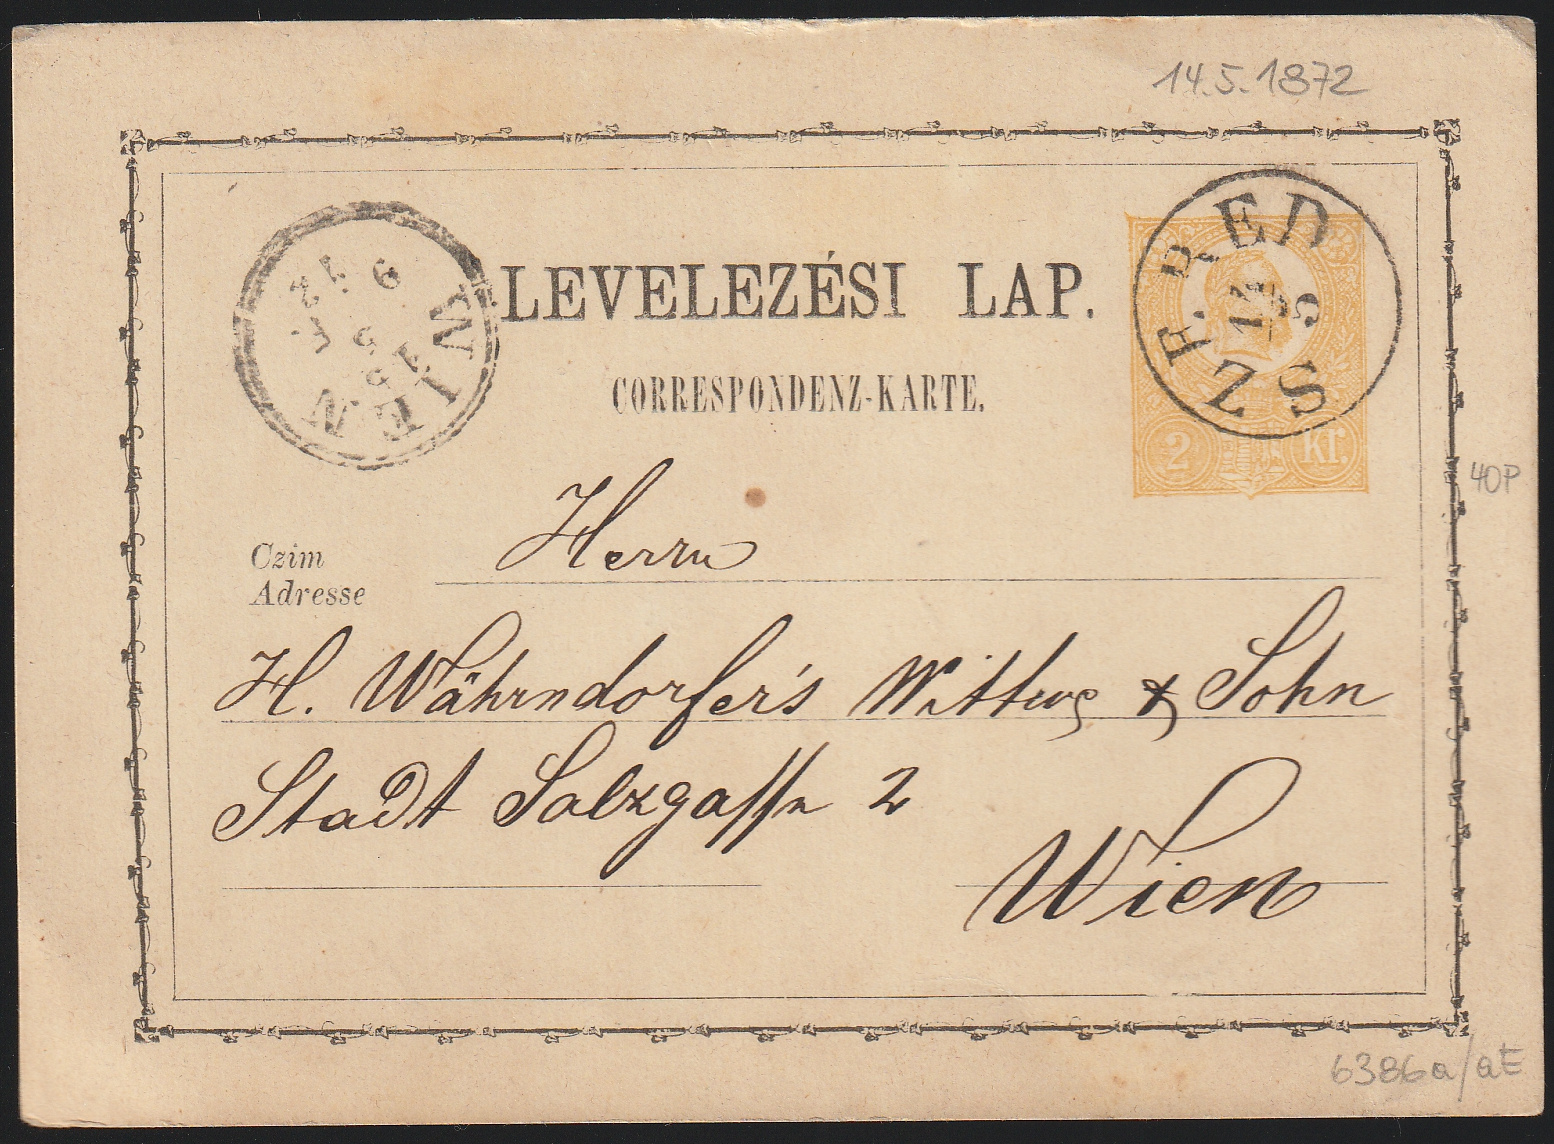 14.5.1872
LEVELEZÉSI LAP.
CORRESPONDENZ-KARTE.
SZERED
14
5
2 kr.
WIEN
15
5
40P
Czim
Adresse
Herrn
H. Währndorfer's Wittwe & Sohn
Stadt Salzgasse 2
Wien
6386a/at